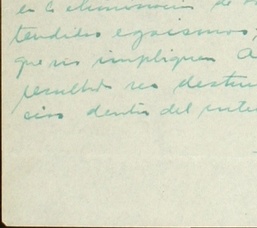 en la eliminación de
tendidos egoismos,
que no impliquen
resultado sea destru
cios dentro del inte